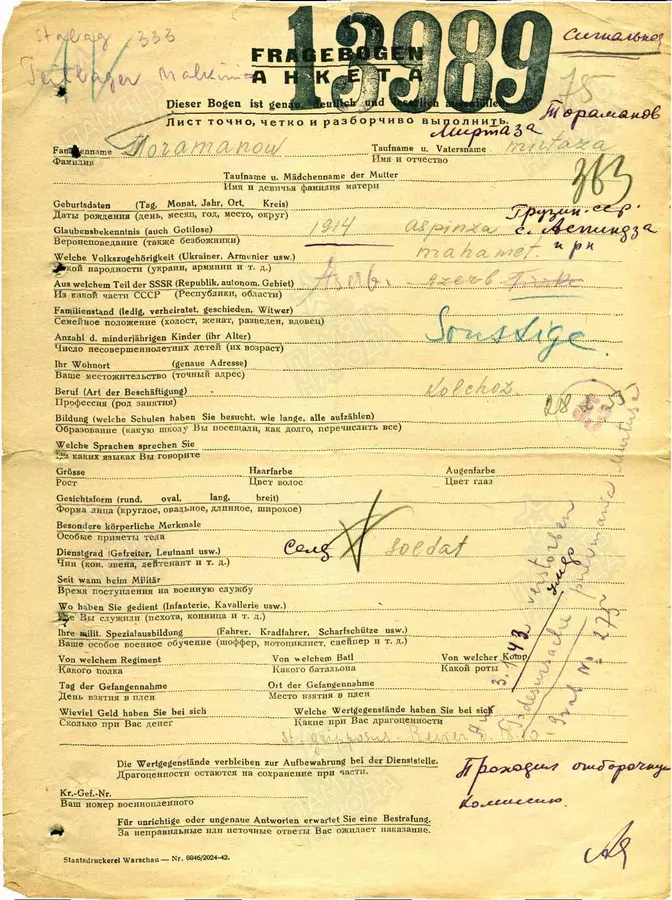 Stalag 333
Teillager Malkinia
13989
Сигнальная
FRAGEBOGEN
АНКЕТА
75
Dieser Bogen ist genau, deutlich und leserlich auszufüllen.
Лист точно, четко и разборчиво выполнить.
Миртаза Тораманов
Familienname Toramanow Taufname u. Vatersname mirtaza
Фамилия Имя и отчество
Taufname u. Mädchenname der Mutter
Имя и девичья фамилия матери
Geburtsdaten (Tag, Monat, Jahr, Ort, Kreis)
Даты рождения (день, месяц, год, место, округ)
Грузин. сср.
с. Аспиндза
1914 aspinza
Glaubensbekenntnis (auch Gottlose)
Вероисповедание (также безбожники)
mahamet.
Welche Volkszugehörigkeit (Ukrainer, Armenier usw.)
Какой народности (украин, армянин и т. д.)
Azerb. azerb
Aus welchem Teil der SSSR (Republik, autonom. Gebiet)
Из какой части СССР (Республики, области)
Familienstand (ledig, verheiratet, geschieden, Witwer)
Семейное положение (холост, женат, разведен, вдовец)
Sonstige.
Anzahl d. minderjährigen Kinder (ihr Alter)
Число несовершеннолетних детей (их возраст)
Ihr Wohnort (genaue Adresse)
Ваше местожительство (точный адрес)
Beruf (Art der Beschäftigung) Kolchoz
Профессия (род занятия)
Bildung (welche Schulen haben Sie besucht, wie lange, alle aufzählen)
Образование (какую школу Вы посещали, как долго, перечислить все)
Welche Sprachen sprechen Sie
На каких языках Вы говорите
Grösse Haarfarbe Augenfarbe
Рост Цвет волос Цвет глаз
Gesichtsform (rund, oval, lang, breit)
Форма лица (круглое, овальное, длинное, широкое)
Besondere körperliche Merkmale
Особые приметы тела
Dienstgrad (Gefreiter, Leutnant usw.) soldat
Чин (ком. звена, лейтенант и т. д.)
Seit wann beim Militär
Время поступления на военную службу
Wo haben Sie gedient (Infanterie, Kavallerie usw.)
Где Вы служили (пехота, конница и т. д.)
Ihre milit. Spezialausbildung (Fahrer, Kradfahrer, Scharfschütze usw.)
Ваше особое военное обучение (шоффер, мотоциклист, снейпер и т. д.)
Von welchem Regiment Von welchem Batl Von welcher Komp
Какого полка Какого батальона Какой роты
Tag der Gefangennahme Ort der Gefangennahme
День взятия в плен Место взятия в плен
Wieviel Geld haben Sie bei sich Welche Wertgegenstände haben Sie bei sich
Сколько при Вас денег Какие при Вас драгоценности
3.1.43 verstorben
умер
Todesursache pneumonia
Grab № 275
Die Wertgegenstände verbleiben zur Aufbewahrung bei der Dienststelle.
Драгоценности остаются на сохранение при части.
Проходил отборочную
комиссию.
Kr.-Gef.-Nr.
Ваш номер военнопленного
Für unrichtige oder ungenaue Antworten erwartet Sie eine Bestrafung.
За неправильные или неточные ответы Вас ожидает наказание.
Staatsdruckerei Warschau — Nr. 8846/2024-42.